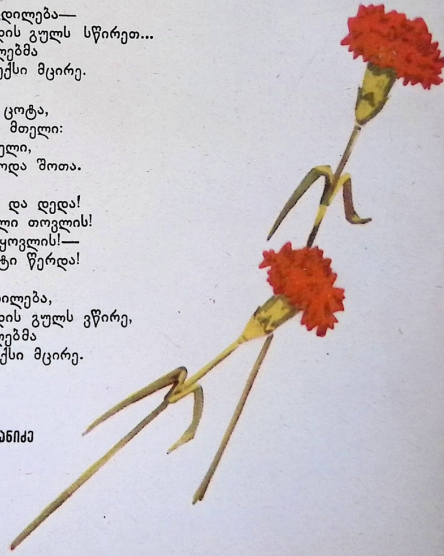 დილება—
დის გულს სწირეთ...
ლებმა
ექსი მცირე.
ცოტა,
მთელი:
ელი,
ოდა შოთა.
და დედა!
ლი თოვლის!
ყოვლის!—
ტი წერდა!
ილება,
დის გულს ვწირე,
ლებმა
ქსი მცირე.
ᲐᲜᲘᲫᲔ